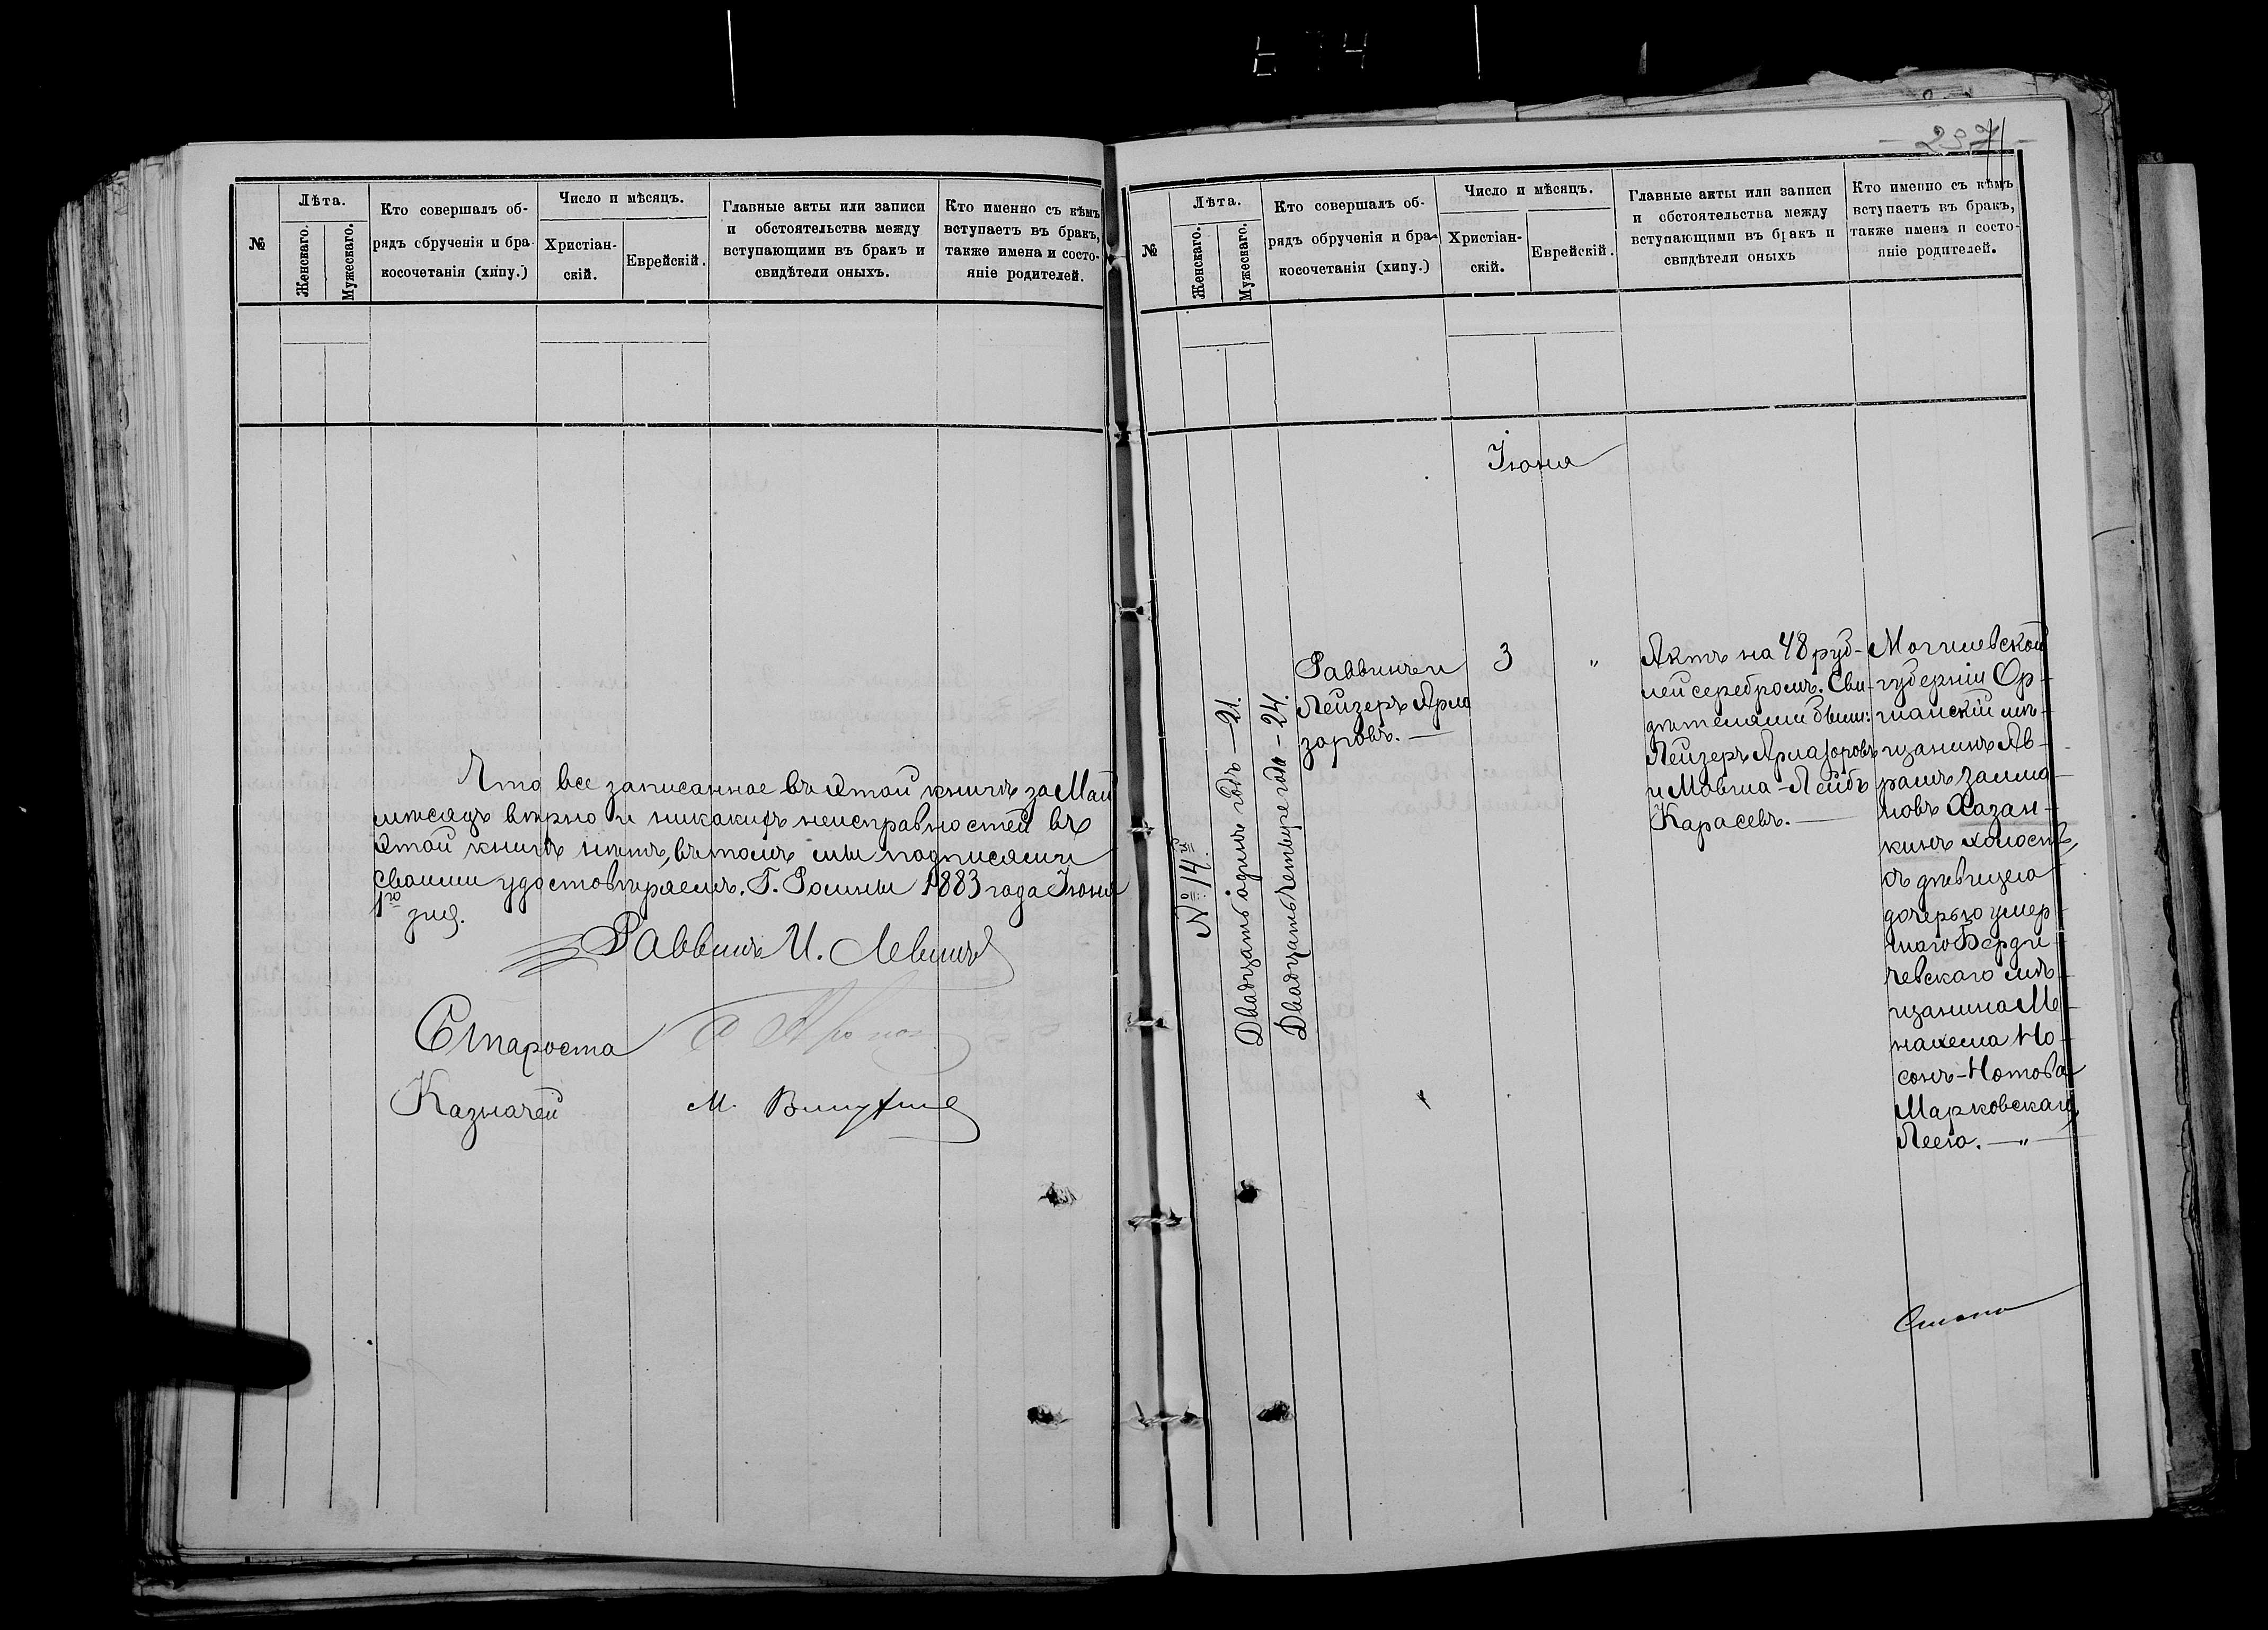 №
Лѣта.
Женскаго.
Мужескаго.
Кто совершалъ об-
рядъ обрученія и бра-
косочетанія (хипу.)
Число и мѣсяцъ.
Христіан-
скій.
Еврейскій.
Главные акты или записи
и обстоятельства между
вступающими въ бракъ и
свидѣтели оныхъ.
Кто именно съ кѣмъ
вступаетъ въ бракъ,
также имена и состо-
яніе родителей.
Что все записанное въ этой книгѣ за Май
мѣсяцъ вѣрно и никакихъ неисправностей въ
этой книгѣ нѣтъ, въ томъ мы подписями
своими удостовѣряемъ. Г. Ромны 1883 года Іюня
1го дня.
Раввинъ И. Левинъ
Староста
Казначей М.
237
№
Лѣта.
Женскаго.
Мужескаго.
Кто совершалъ об-
рядъ обрученія и бра-
косочетанія (хипу.)
Число и мѣсяцъ.
Христіан-
скій.
Еврейскій.
Главные акты или записи
и обстоятельства между
вступающими въ бракъ и
свидѣтели оныхъ
Кто именно съ кѣмъ
вступаетъ въ бракъ,
также имена и состо-
яніе родителей.
Іюня
№ 14й
Двадцать одинъ годъ — 21.
Двадцать четыре года — 24.
Раввинъ и
Лейзеръ Арма
зоровъ. —
3
"
Актъ на 48 руб-
лей серебромъ. Сви-
дѣтелями были:
Лейзеръ Армазоровъ
и Мовша-Лейбъ
Карасевъ. —
Могилевской
губерніи Ор-
шанскій мѣ-
щанинъ Ав-
рамъ Залма-
новъ Хазан-
кинъ холостъ,
съ дѣвицею
дочерью умер-
шаго Берди-
чевскаго мѣ-
щанина Ме-
нахема Но-
сонъ-Нотова
Марковскаго
Леею. — " —